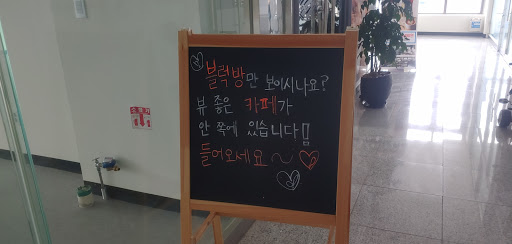 블럭방만 보이시나요?
뷰 좋은 카페가
안 쪽에 있습니다!!
들어오세요~